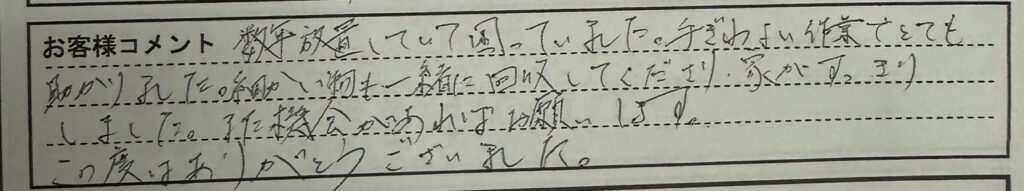 お客様コメント 数年放置していて困っていました。手ぎわよい作業でとても
助かりました。細かい物も一緒に回収してくださり、家がすっきり
しました。また機会があればお願いします。
この度はありがとうございました。